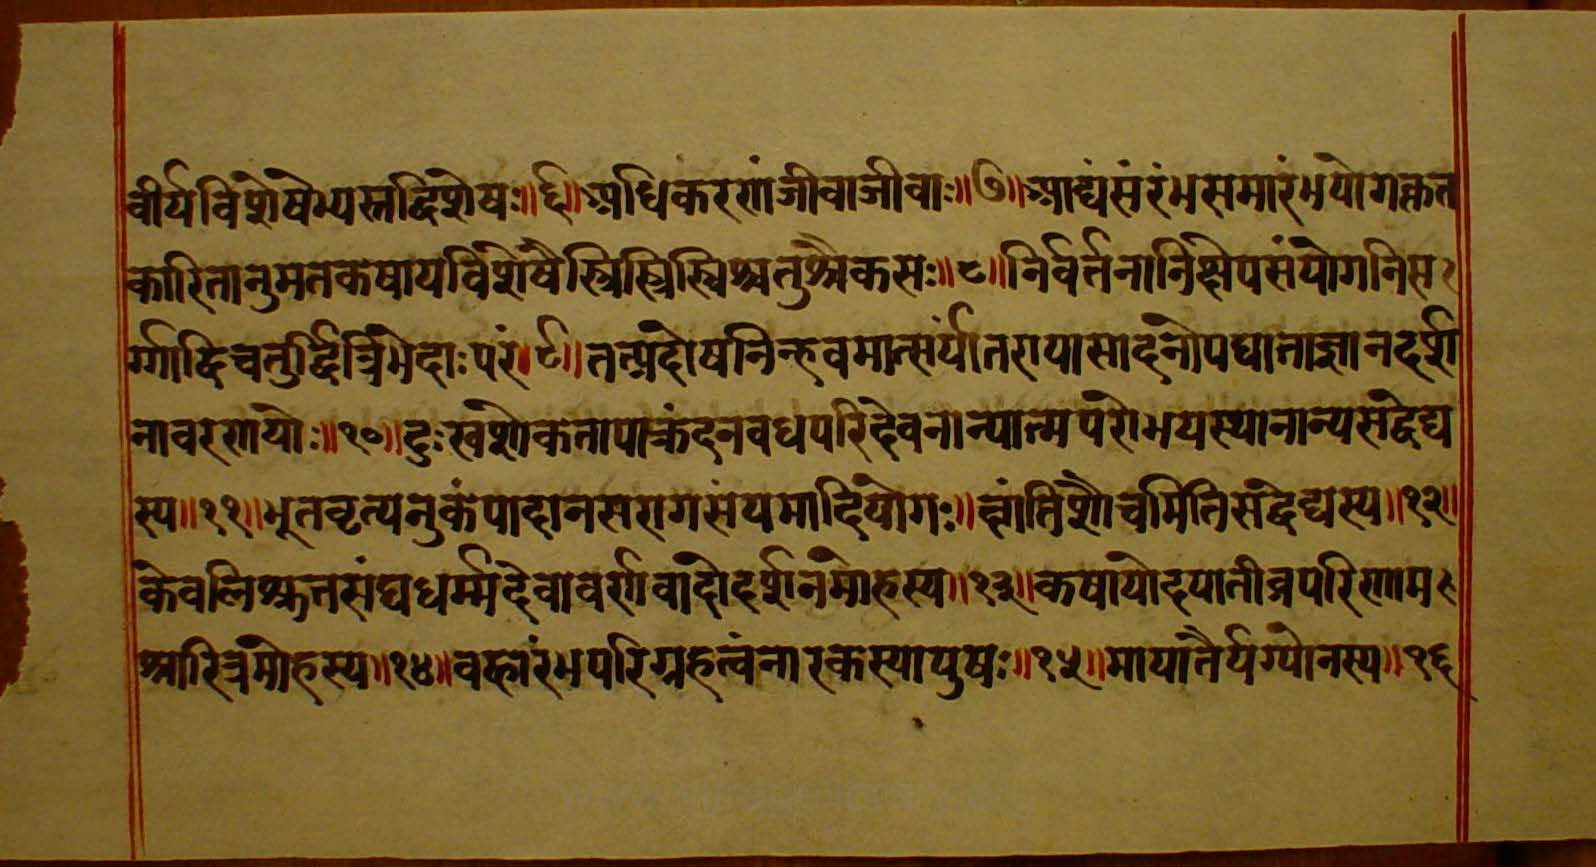 वीर्यविशेषेभ्यस्तद्विशेषः॥६॥अधिकरणंजीवाजीवाः॥७॥आद्यंसंरंभसमारंभयोगकृत
कारितानुमतकषायविशेषैस्त्रिस्त्रिस्त्रिश्चतुश्चैकसः॥८॥निर्वर्तनानिक्षेपसंयोगनिस
र्ग्गाद्विचतुर्द्वित्रिभेदाःपरं॥९॥तत्प्रदोषनिन्हवमात्सर्यांतरायासादनोपघाताज्ञानदर्श
नावरणयोः॥१०॥दुःखशोकतापाक्रंदनवधपरिदेवनान्यात्मपरोभयस्थानान्यसद्वेद्य
स्य॥११॥भूतवृत्यनुकंपादानसरागसंयमादियोगः॥क्षांतिशौचमितिसद्वेद्यस्य॥१२॥
केवलिश्रुतसंघधर्म्मदेवावर्णवादोदर्शनमोहस्य॥१३॥कषायोदयातीव्रपरिणाम
श्चारित्रमोहस्य॥१४॥वह्वारंभपरिग्रहत्वंनारकस्यायुषः॥१५॥मायातैर्यग्योनस्य॥१६